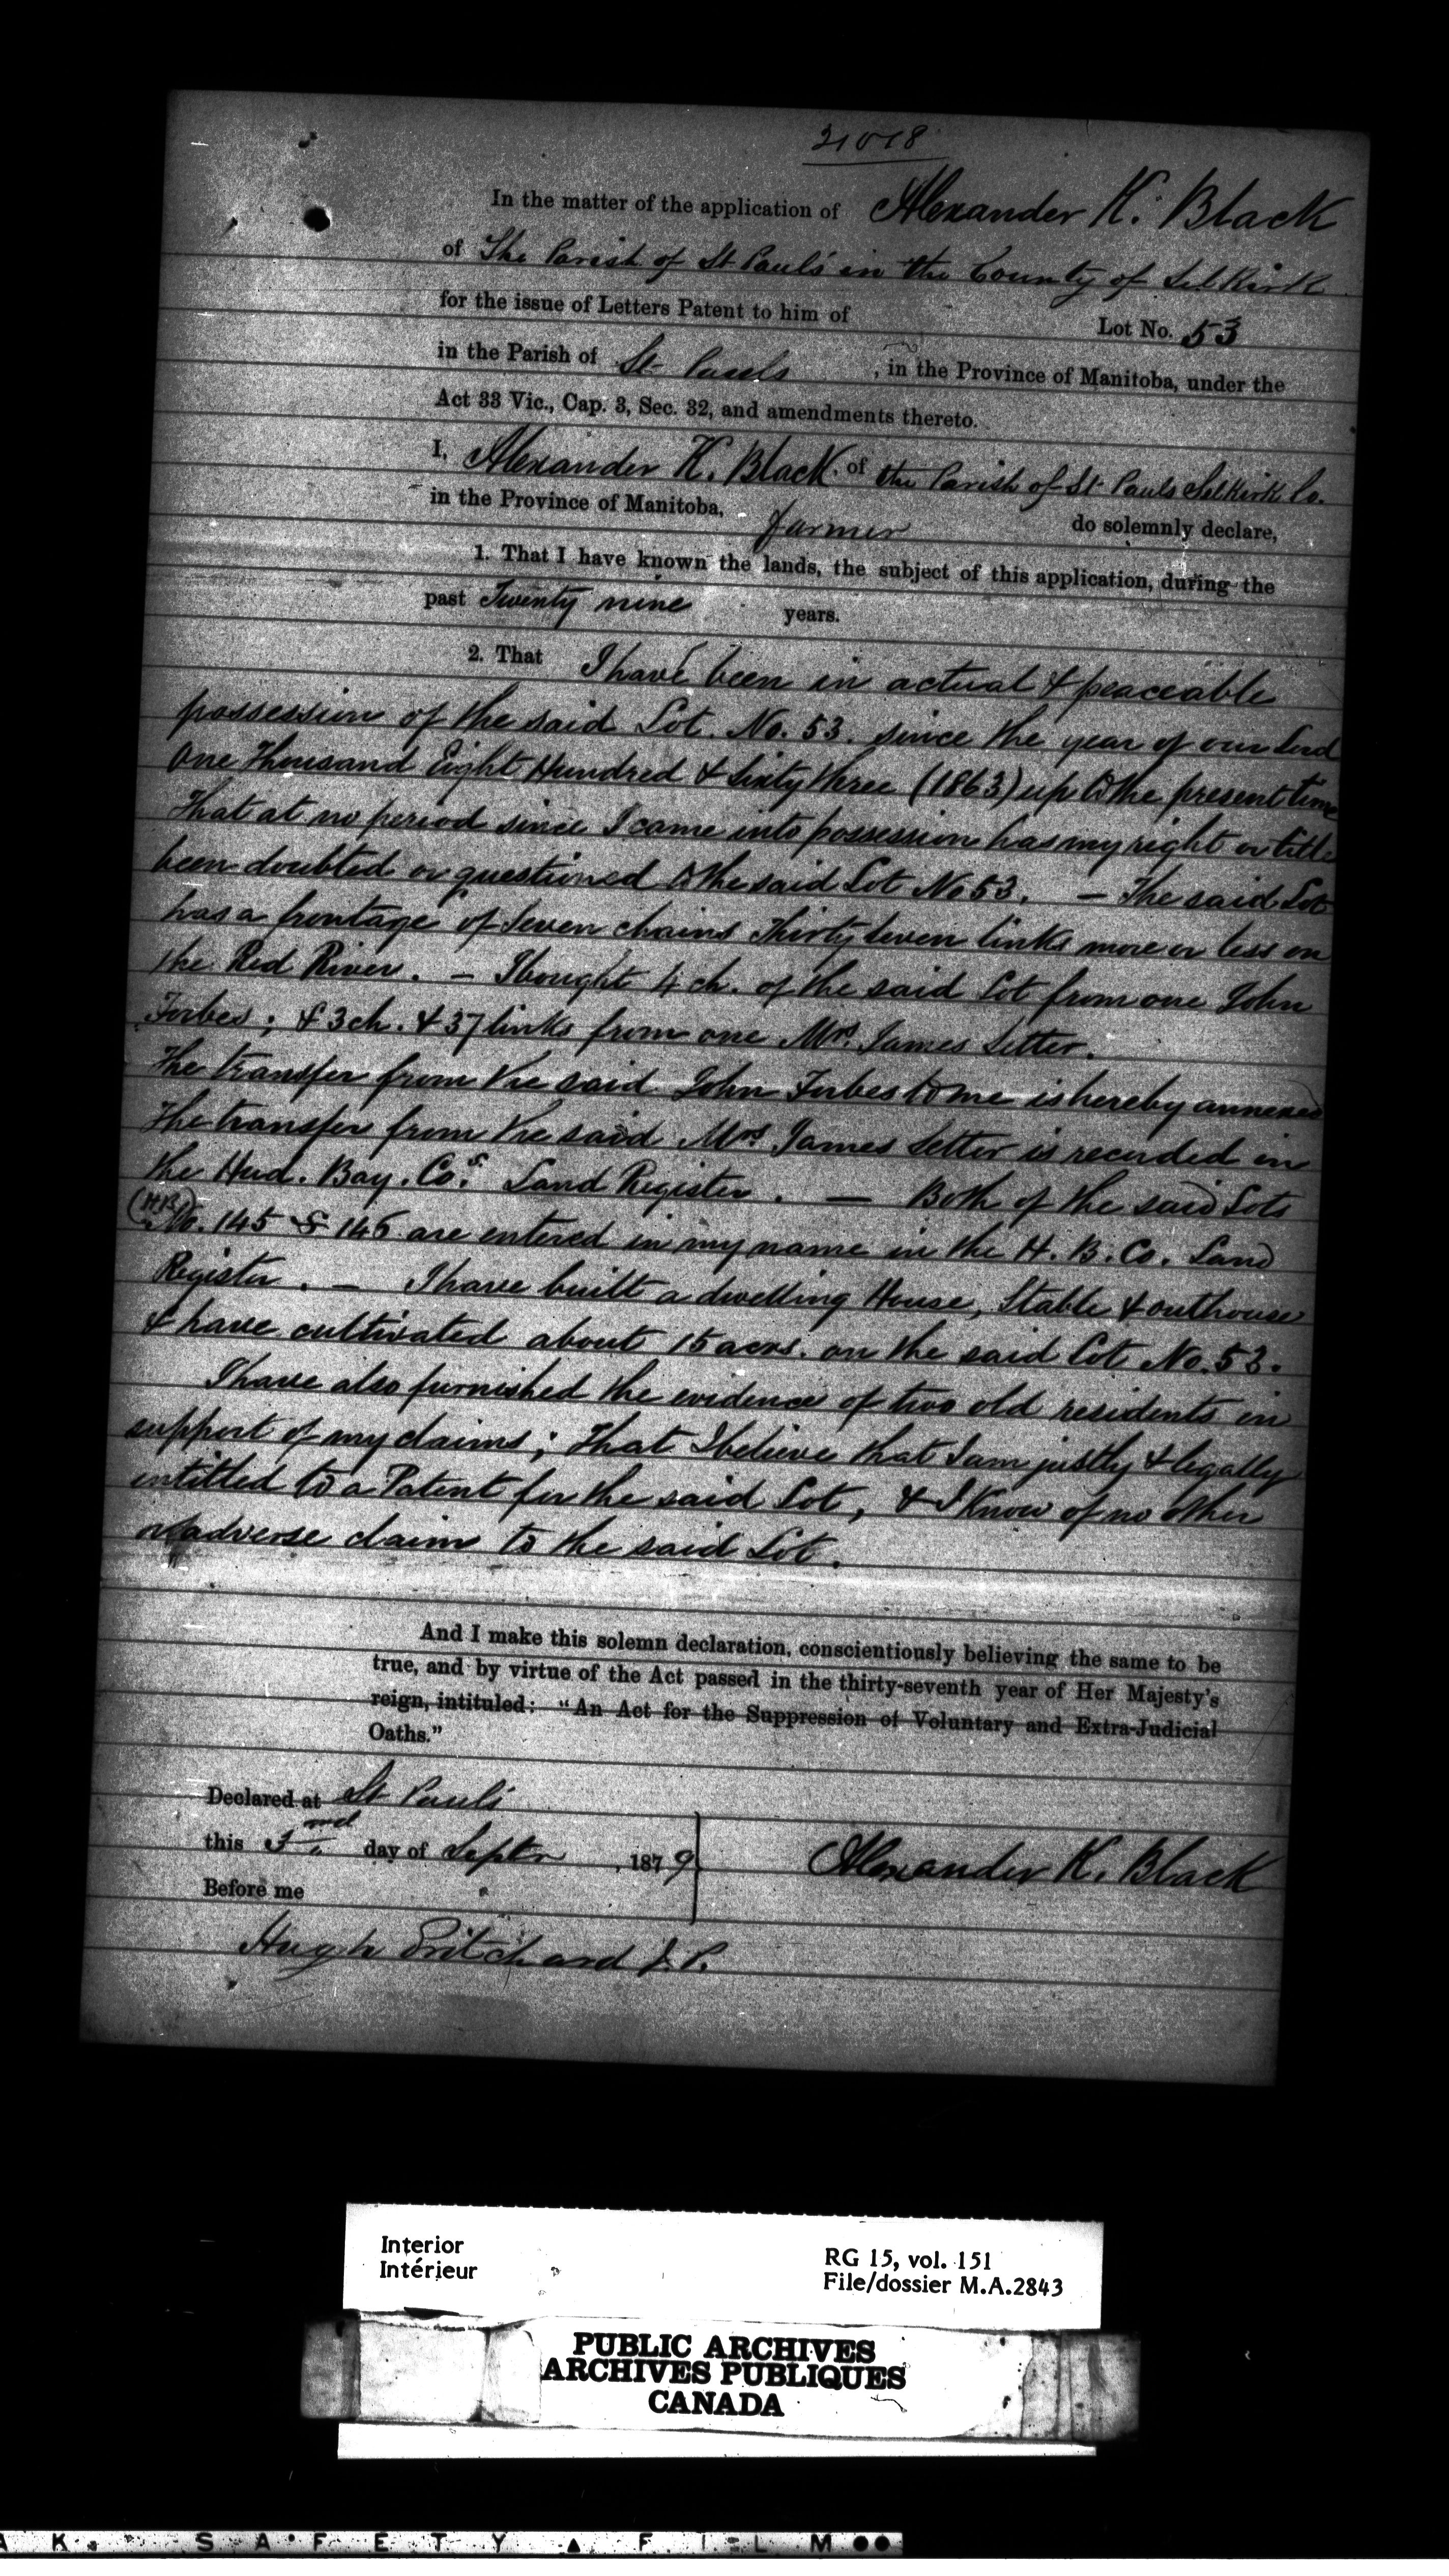 21018
In the matter of the application of Alexander K. Black
of The Parish of St Paul's in the County of Selkirk
for the issue of Letters Patent to him of Lot No. 53
in the Parish of St Pauls , in the Province of Manitoba, under the
Act 33 Vic., Cap. 3, Sec. 32, and amendments thereto.
I, Alexander K. Black of the Parish of St Pauls Selkirk Co.
in the Province of Manitoba, farmer do solemnly declare,
1. That I have known the lands, the subject of this application, during the
past Twenty nine years.
2. That I have been in actual & peaceable
possession of the said Lot No. 53. since the year of our Lord
One Thousand Eight Hundred & Sixty three (1863) up to the present time
That at no period since I came into possession has my right or title
been doubted or questioned to the said Lot No 53. — The said Lot
has a frontage of seven chains Thirty seven links more or less on
the Red River. — I bought 4 ch. of the said Lot from one John
Forbes; & 3 ch. & 37 links from one Mrs. James Setter.
The transfer from the said John Forbes to me is hereby annexed
The transfer from the said Mrs James Setter is recorded in
the Hud. Bay. Co.s Land Register. — Both of the said Lots
(HB) No. 145 & 146 are entered in my name in the H. B. Co. Land
Register. — I have built a dwelling House, Stable & outhouse
& have cultivated about 15 acres. on the said Lot No. 53.
I have also furnished the evidence of two old residents in
support of my claims; That I believe that I am justly & legally
entitled to a Patent for the said Lot, & I know of no other
or adverse claim to the said Lot.
And I make this solemn declaration, conscientiously believing the same to be
true, and by virtue of the Act passed in the thirty-seventh year of Her Majesty's
reign, intituled: "An Act for the Suppression of Voluntary and Extra-Judicial
Oaths."
Declared at St Paul's
this 3rd day of Septr , 1879
Alexander K. Black
Before me
Hugh Pritchard J. P.
Interior
Intérieur
RG 15, vol. 151
File/dossier M.A.2843
PUBLIC ARCHIVES
ARCHIVES PUBLIQUES
CANADA
A K SAFETY ▲ FILM ●●